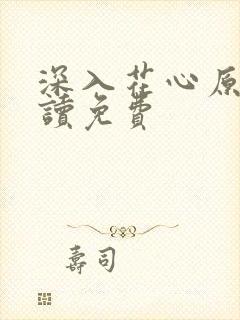 深入花心原
讀免費
壽司